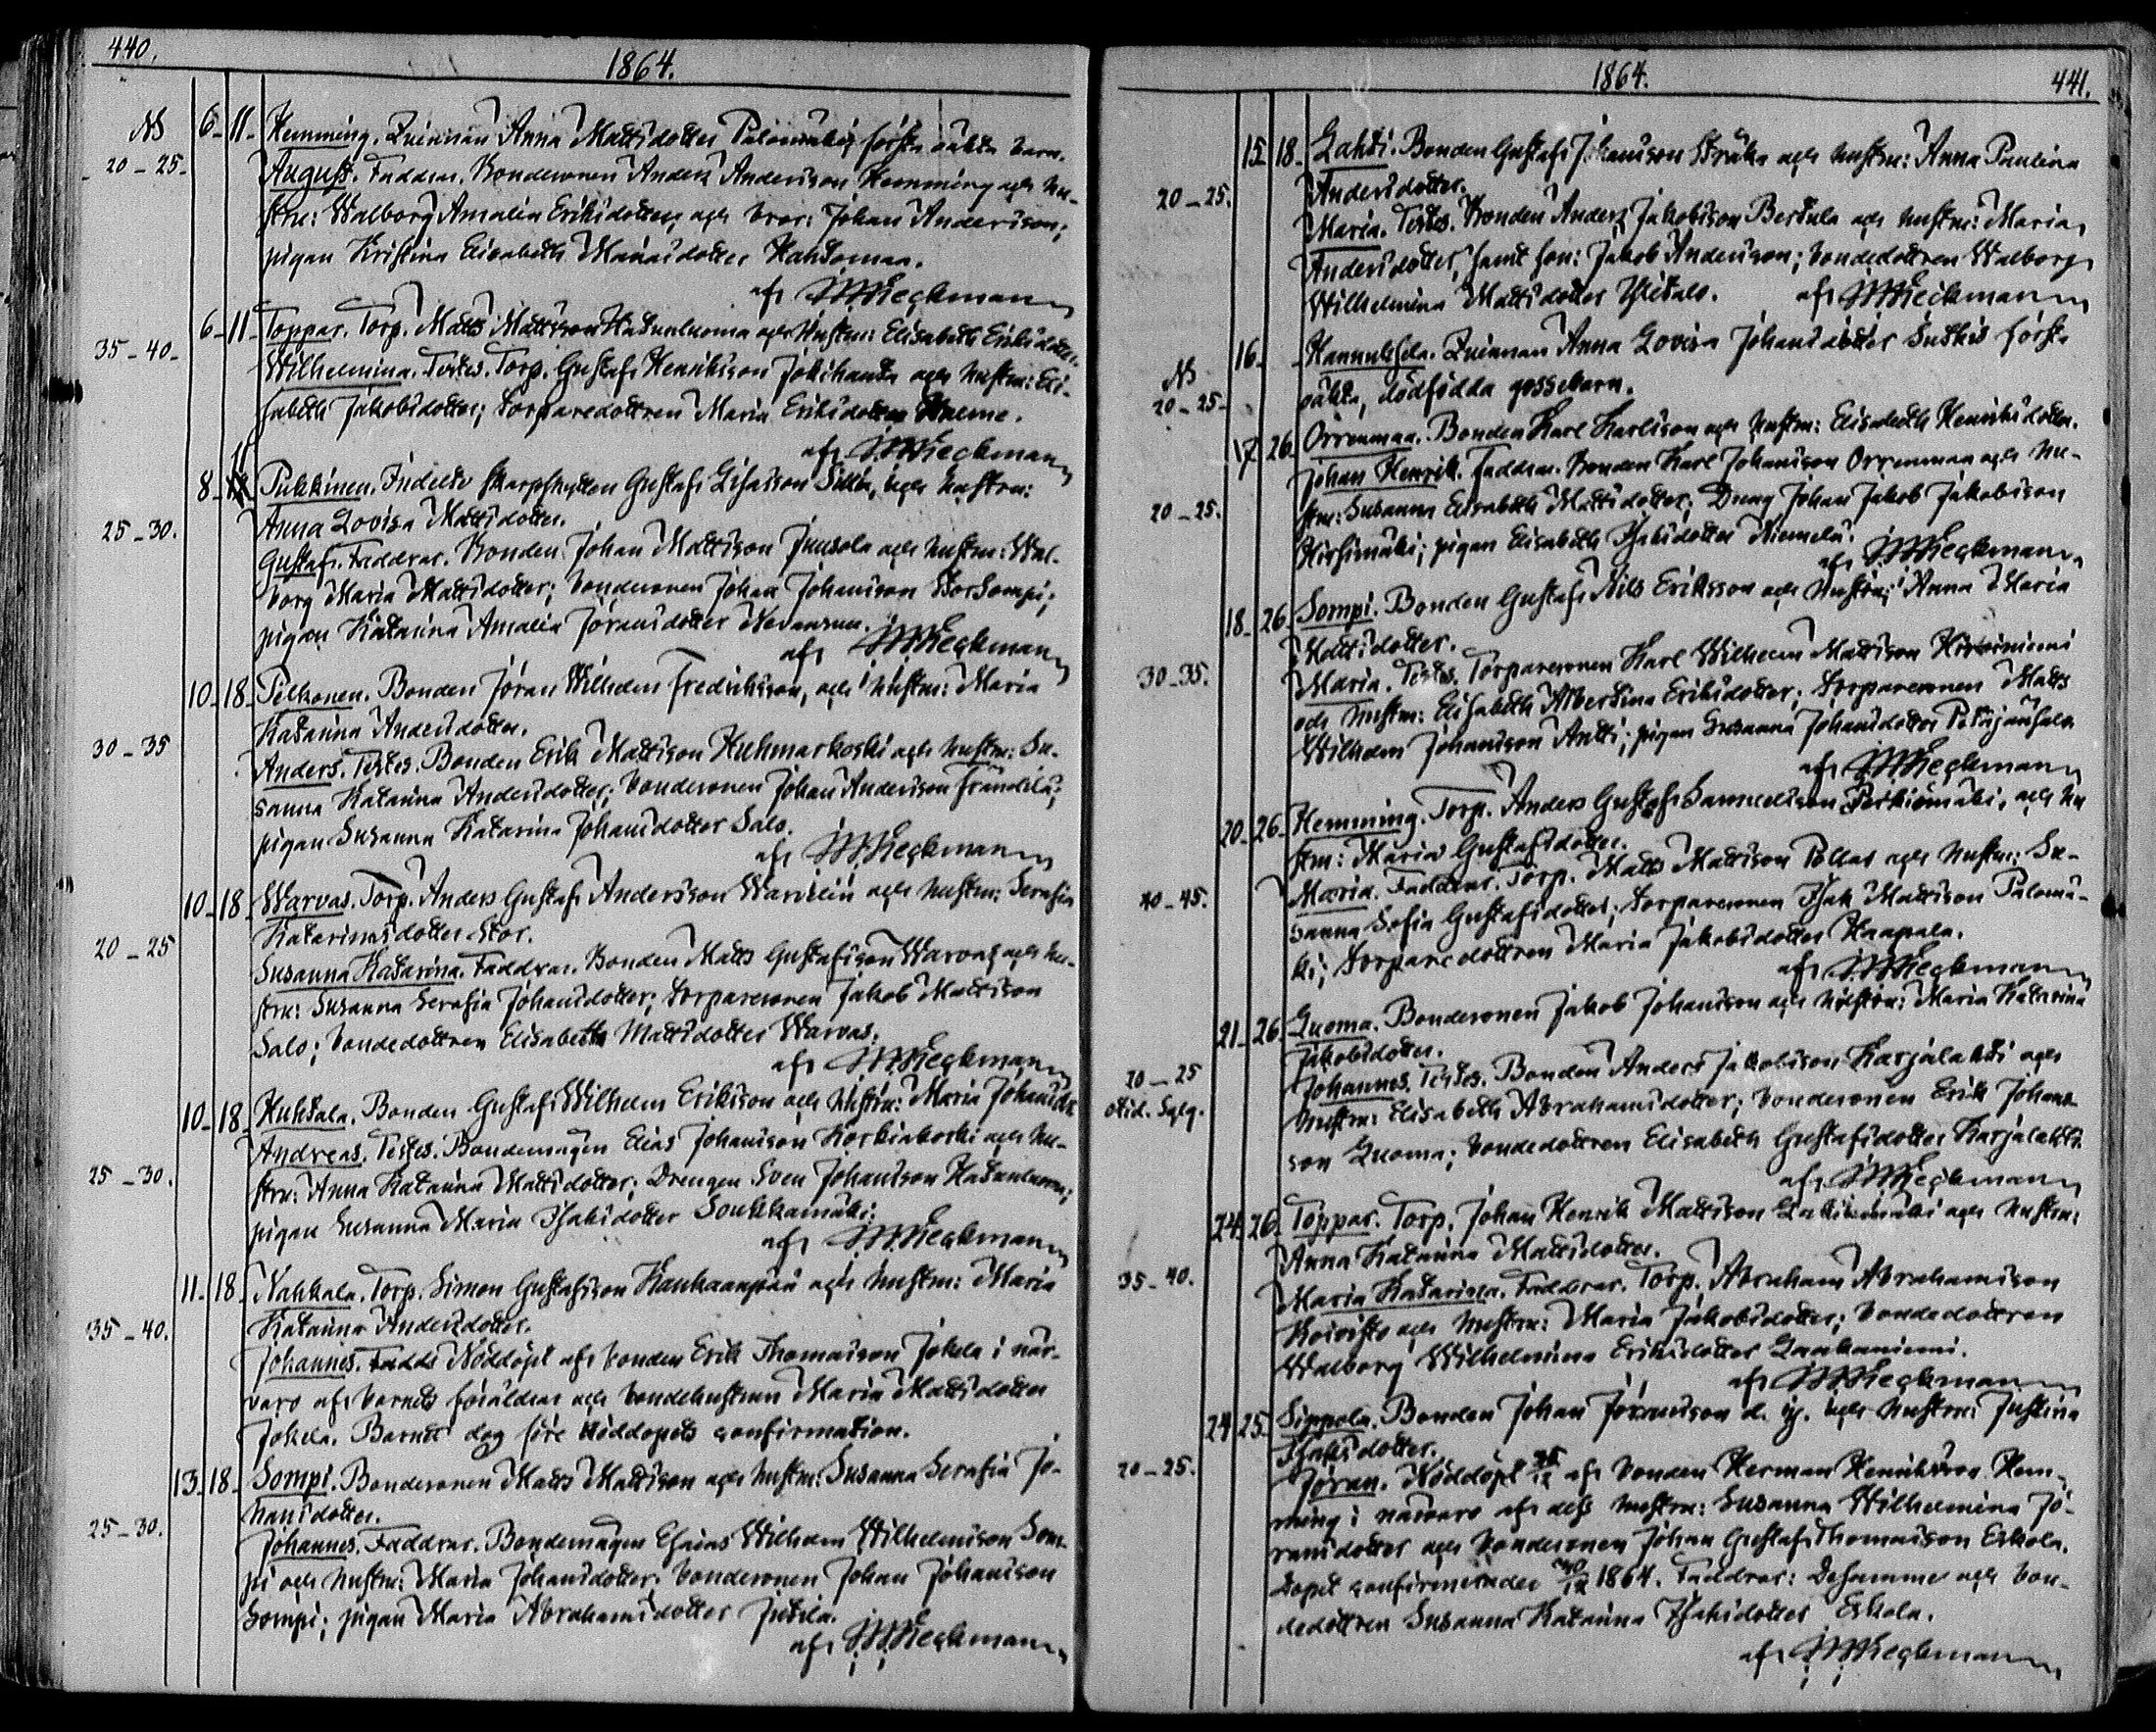 440.
1864.
NB 6 - 11 - Hemming. Qvinnan Anna Mattsdotter Palomäkis första oäkta barn.
20 - 25. August. Faddrar. Bondesonen Anders Andersson Hemming och hu-
stru: Walborg Amalia Eriksdotter, och bror: Johan Andersson;
pigan Kristina Elisabeth Manasdotter Kantomaa.
af J. W. Keckman
6 - 11 - Toppar. Torp. Matts Mattsson Katunluoma och hustru: Elisabeth Eriksdotter.
35 - 40. Wilhelmina. Testes. Torp. Gustaf Henriksson Jokihanta och hustru: Eli-
sabeth Jakobsdotter; torparedottren Maria Eriksdotter
af J. W. Keckman
8 - 11 Pukkinen. Indelte skarpskytten Gustaf Esaisson Sillin, och hustru:
Anna Lovisa Mattsdotter.
25 - 30. Gustaf. Faddrar. Bonden Johan Mattsson Juusola och hustru: Wal-
borg Maria Mattsdotter; bondesonen Johan Johansson Storsompi;
pigan Katarina Amalia Jöransdotter
af J. W. Keckman
10 - 18 - Pelkonen. Bonden Jöran Wilhelm Fredriksson, och hustru: Maria
Katarina Andersdotter.
30 - 35 Anders. Testes. Bonden Erik Mattsson Kuhmarkoski och hustru: Su-
sanna Katarina Andersdotter; bondesonen Johan Andersson Fräntilä;
pigan Susanna Katarina Johansdotter Salo.
af J. W. Keckman
10 - 18 - Warvas. Torp. Anders Gustaf Andersson Warvelin och hustru: Serafia
Katarinasdotter Stor.
20 - 25 Susanna Katarina. Faddrar. Bonden Matts Gustafsson Warvas och hu-
stru: Susanna Serafia Johansdotter; torparesonen Jakob Mattsson
Salo; bondedottren Elisabeth Mattsdotter Warvas.
af J. W. Keckman
10 - 18 - Huhtala. Bonden Gustaf Wilhelm Eriksson och hustru: Maria Johansdr
Andreas. Testes. Bondemågen Elias Johansson Koskiakoski och hu-
25 - 30. stru: Anna Katarina Mattsdotter; Drengen Sven Johansson Katunluoma;
pigan Susanna Maria Isaksdotter Soukkamäki.
af J. W. Keckman
11 - 18 - Nahkala. Torp. Simon Gustafsson Kauhaanpää och hustru: Maria
Katarina Andersdotter.
35 - 40. Johannes. Nöddöpt af bonden Erik Thomasson Jokela i när-
varo af barnets föräldrar och bondehustrun Maria Mattsdotter
Jokela. Barnet dog före nöddopets confirmation.
13 - 18 - Sompi. Bondesonen Matts Mattsson och hustru: Susanna Serafia Jo-
hansdotter.
25 - 30. Johannes. Faddrar. Bondemågen Esaias Wilhelm Wilhelmsson Som-
pi och hustru: Maria Johansdotter; bondesonen Johan Johansson
Sompi; pigan Maria Abrahamsdotter Jutila.
af J. W. Keckman
1864.
441.
15 18 - Lahti. Bonden Gustaf Johansson Stråka och hustru: Anna Paulina
20 - 25. Andersdotter.
Maria. Testes. Bonden Anders Jakobsson Bertula och hustru: Maria
Andersdotter, samt son: Jakob Andersson; bondedottren Walborg
Wilhelmina Mattsdotter Ylitalo. af J. W. Keckman
16 - - Hannuksela. Qvinnan Anna Lovisa Johansdotter Suskis första
NB
20 - 25. oäkta, dödfödda gossebarn.
17 26 - Orrenmaa. Bonden Karl Karlsson och hustru: Elisabeth Henriksdotter.
Johan Henrik. Faddrar. Bonden Karl Johansson Orrenmaa och hu-
20 - 25. stru: Susanna Elisabeth Mattsdotter; Dräng Johan Jakob Jakobsson
Hirsimäki; pigan Elisabeth Isaksdotter Niemelä.
af J. W. Keckman
18 - 26 - Sompi. Bonden Gustaf Nils Eriksson och hustru: Anna Maria
Mattsdotter.
30 - 35. Maria. Testes. Torparesonen Karl Wilhelm Mattsson
och hustru: Elisabeth Albertina Eriksdotter; torparesonen Matts
Wilhelm Johansson Antti; pigan Susanna Johansdotter Petäjänsalo
af J. W. Keckman
20 - 26 - Hemming. Torp. Anders Gustaf Samuelsson Perkiömäki, och hu
stru: Maria Gustafsdotter.
40 - 45. Maria. Faddrar. Torp. Matts Mattsson Pollas och hustru: Su-
sanna Sofia Gustafsdotter; torparesonen Isak Mattsson Palomä-
ki; torparedottren Maria Jakobsdotter Haapala.
af J. W. Keckman
21 - 26 - Luoma. Bondesonen Jakob Johansson och hustru: Maria Katarina
Jakobsdotter.
20 - 25 Johannes. Testes. Bonden Anders Jakobsson Karjalahti och
hustru: Elisabeth Abrahamsdotter; bondesonen Erik Johans-
son Luoma; bondedottren Elisabeth Gustafsdotter Karjalahti.
af J. W. Keckman
24 26 - Toppar. Torp. Johan Henrik Mattsson Lakiinmäki och hustru:
Anna Katarina Mattsdotter.
35 - 40. Maria Katarina. Faddrar. Torp. Abraham Abrahamsson
Koivisto och hustru: Maria Jakobsdotter; bondedottren
Walborg Wilhelmina Eriksdotter Laakaniemi.
af J. W. Keckman
24 25 - Sippola. Bonden Johan Jöransson d. y. och hustru: Justina
Isaksdotter.
20 - 25. Jöran. Nöddöpt 25/12 af bonden Herman Henriksson Hem-
ming i närvaro af dess hustru: Susanna Wilhelmina Jö-
ransdotter och bondesonen Johan Gustaf Thomasson Eskola.
Dopet confirmerades 30/12 1864. Faddrar: Desamma och bon-
dedottren Susanna Katarina Isaksdotter Eskola.
af J. W. Keckman